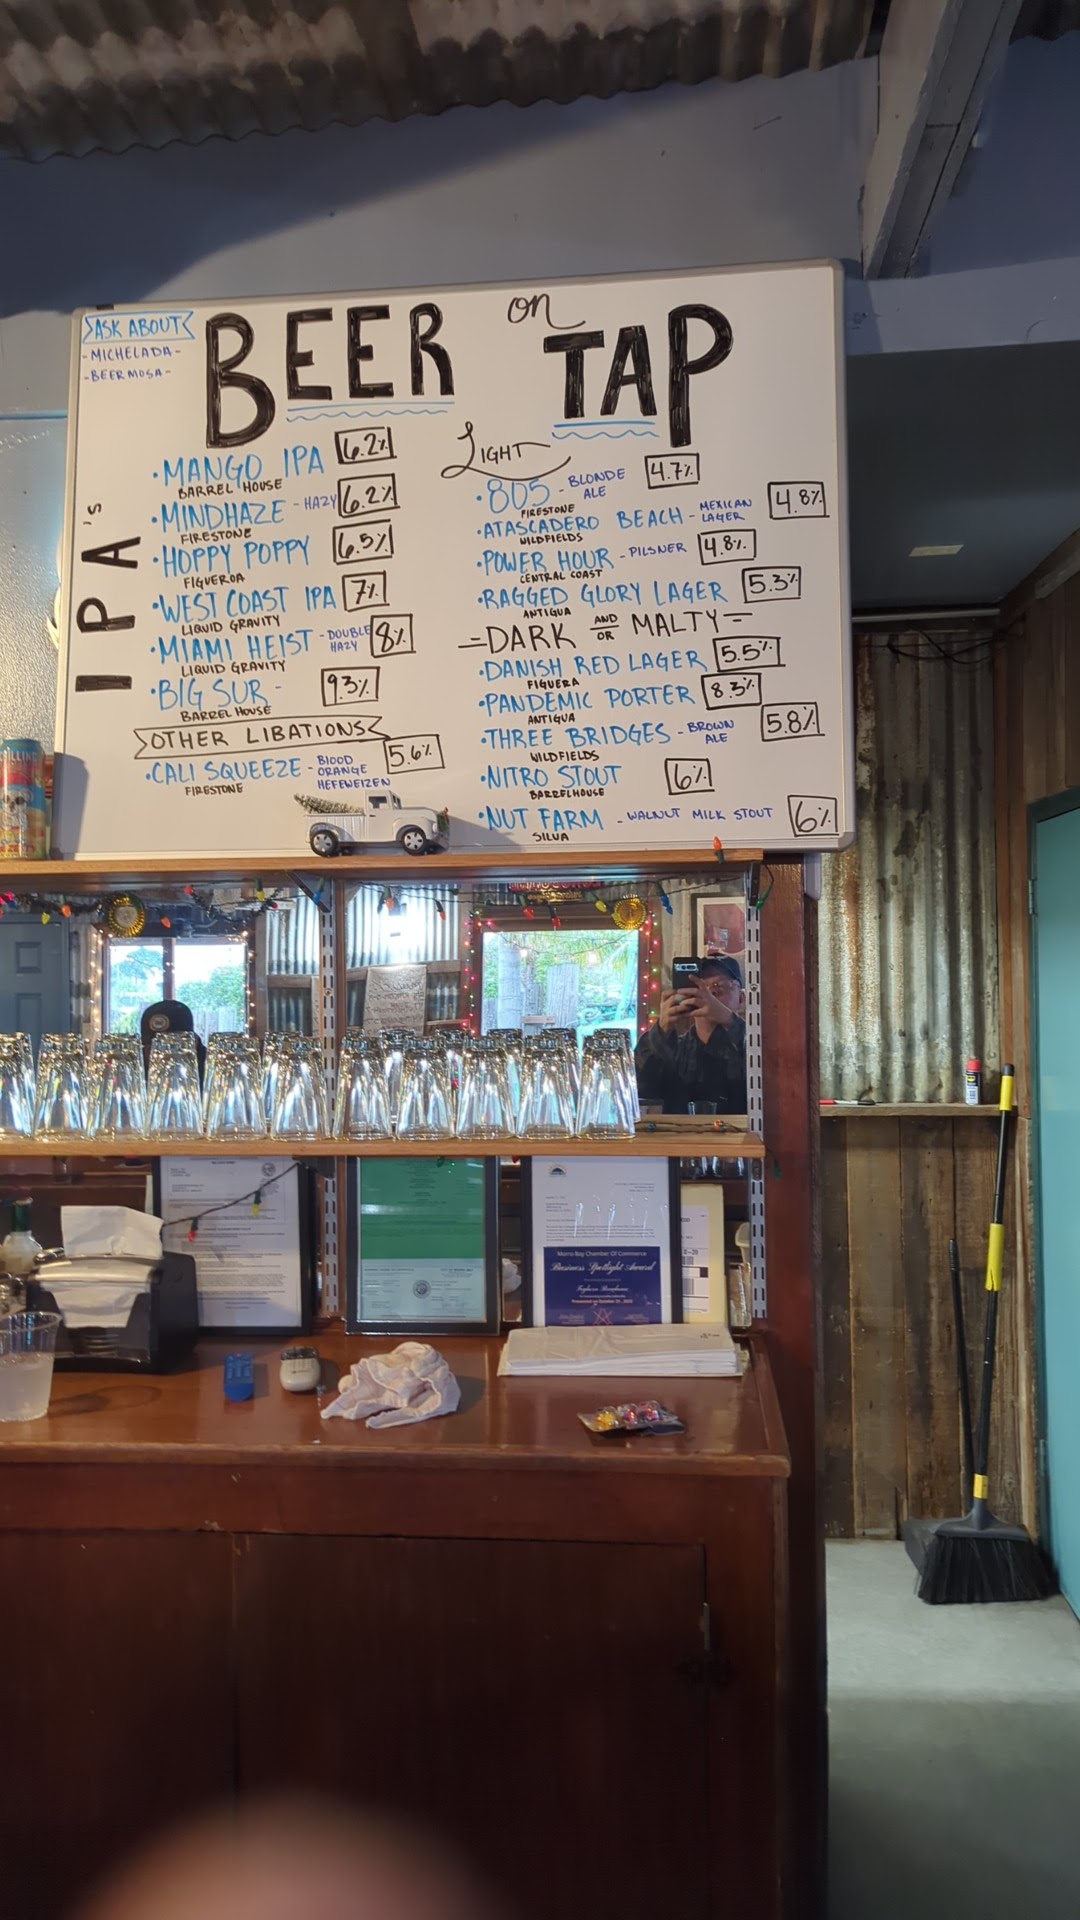 ASK ABOUT
- MICHELADA -
- BEERMOSA -
BEER on TAP
IPA'S
• MANGO IPA 6.2%
BARREL HOUSE
• MINDHAZE - HAZY 6.2%
FIRESTONE
• HOPPY POPPY 6.5%
FIGUEROA
• WEST COAST IPA 7%
LIQUID GRAVITY
• MIAMI HEIST - DOUBLE HAZY 8%
LIQUID GRAVITY
• BIG SUR - 9.3%
BARREL HOUSE
OTHER LIBATIONS
• CALI SQUEEZE - BLOOD ORANGE HEFEWEIZEN 5.6%
FIRESTONE
LIGHT
• 805 - BLONDE ALE 4.7%
FIRESTONE
• ATASCADERO BEACH - MEXICAN LAGER 4.8%
WILDFIELDS
• POWER HOUR - PILSNER 4.8%
CENTRAL COAST
• RAGGED GLORY LAGER 5.3%
ANTIGUA
= DARK AND OR MALTY =
• DANISH RED LAGER 5.5%
FIGUERA
• PANDEMIC PORTER 8.3%
ANTIGUA
• THREE BRIDGES - BROWN ALE 5.8%
WILDFIELDS
• NITRO STOUT 6%
BARRELHOUSE
• NUT FARM - WALNUT MILK STOUT 6%
SILVA
Morro Bay Chamber Of Commerce
Business Spotlight Award